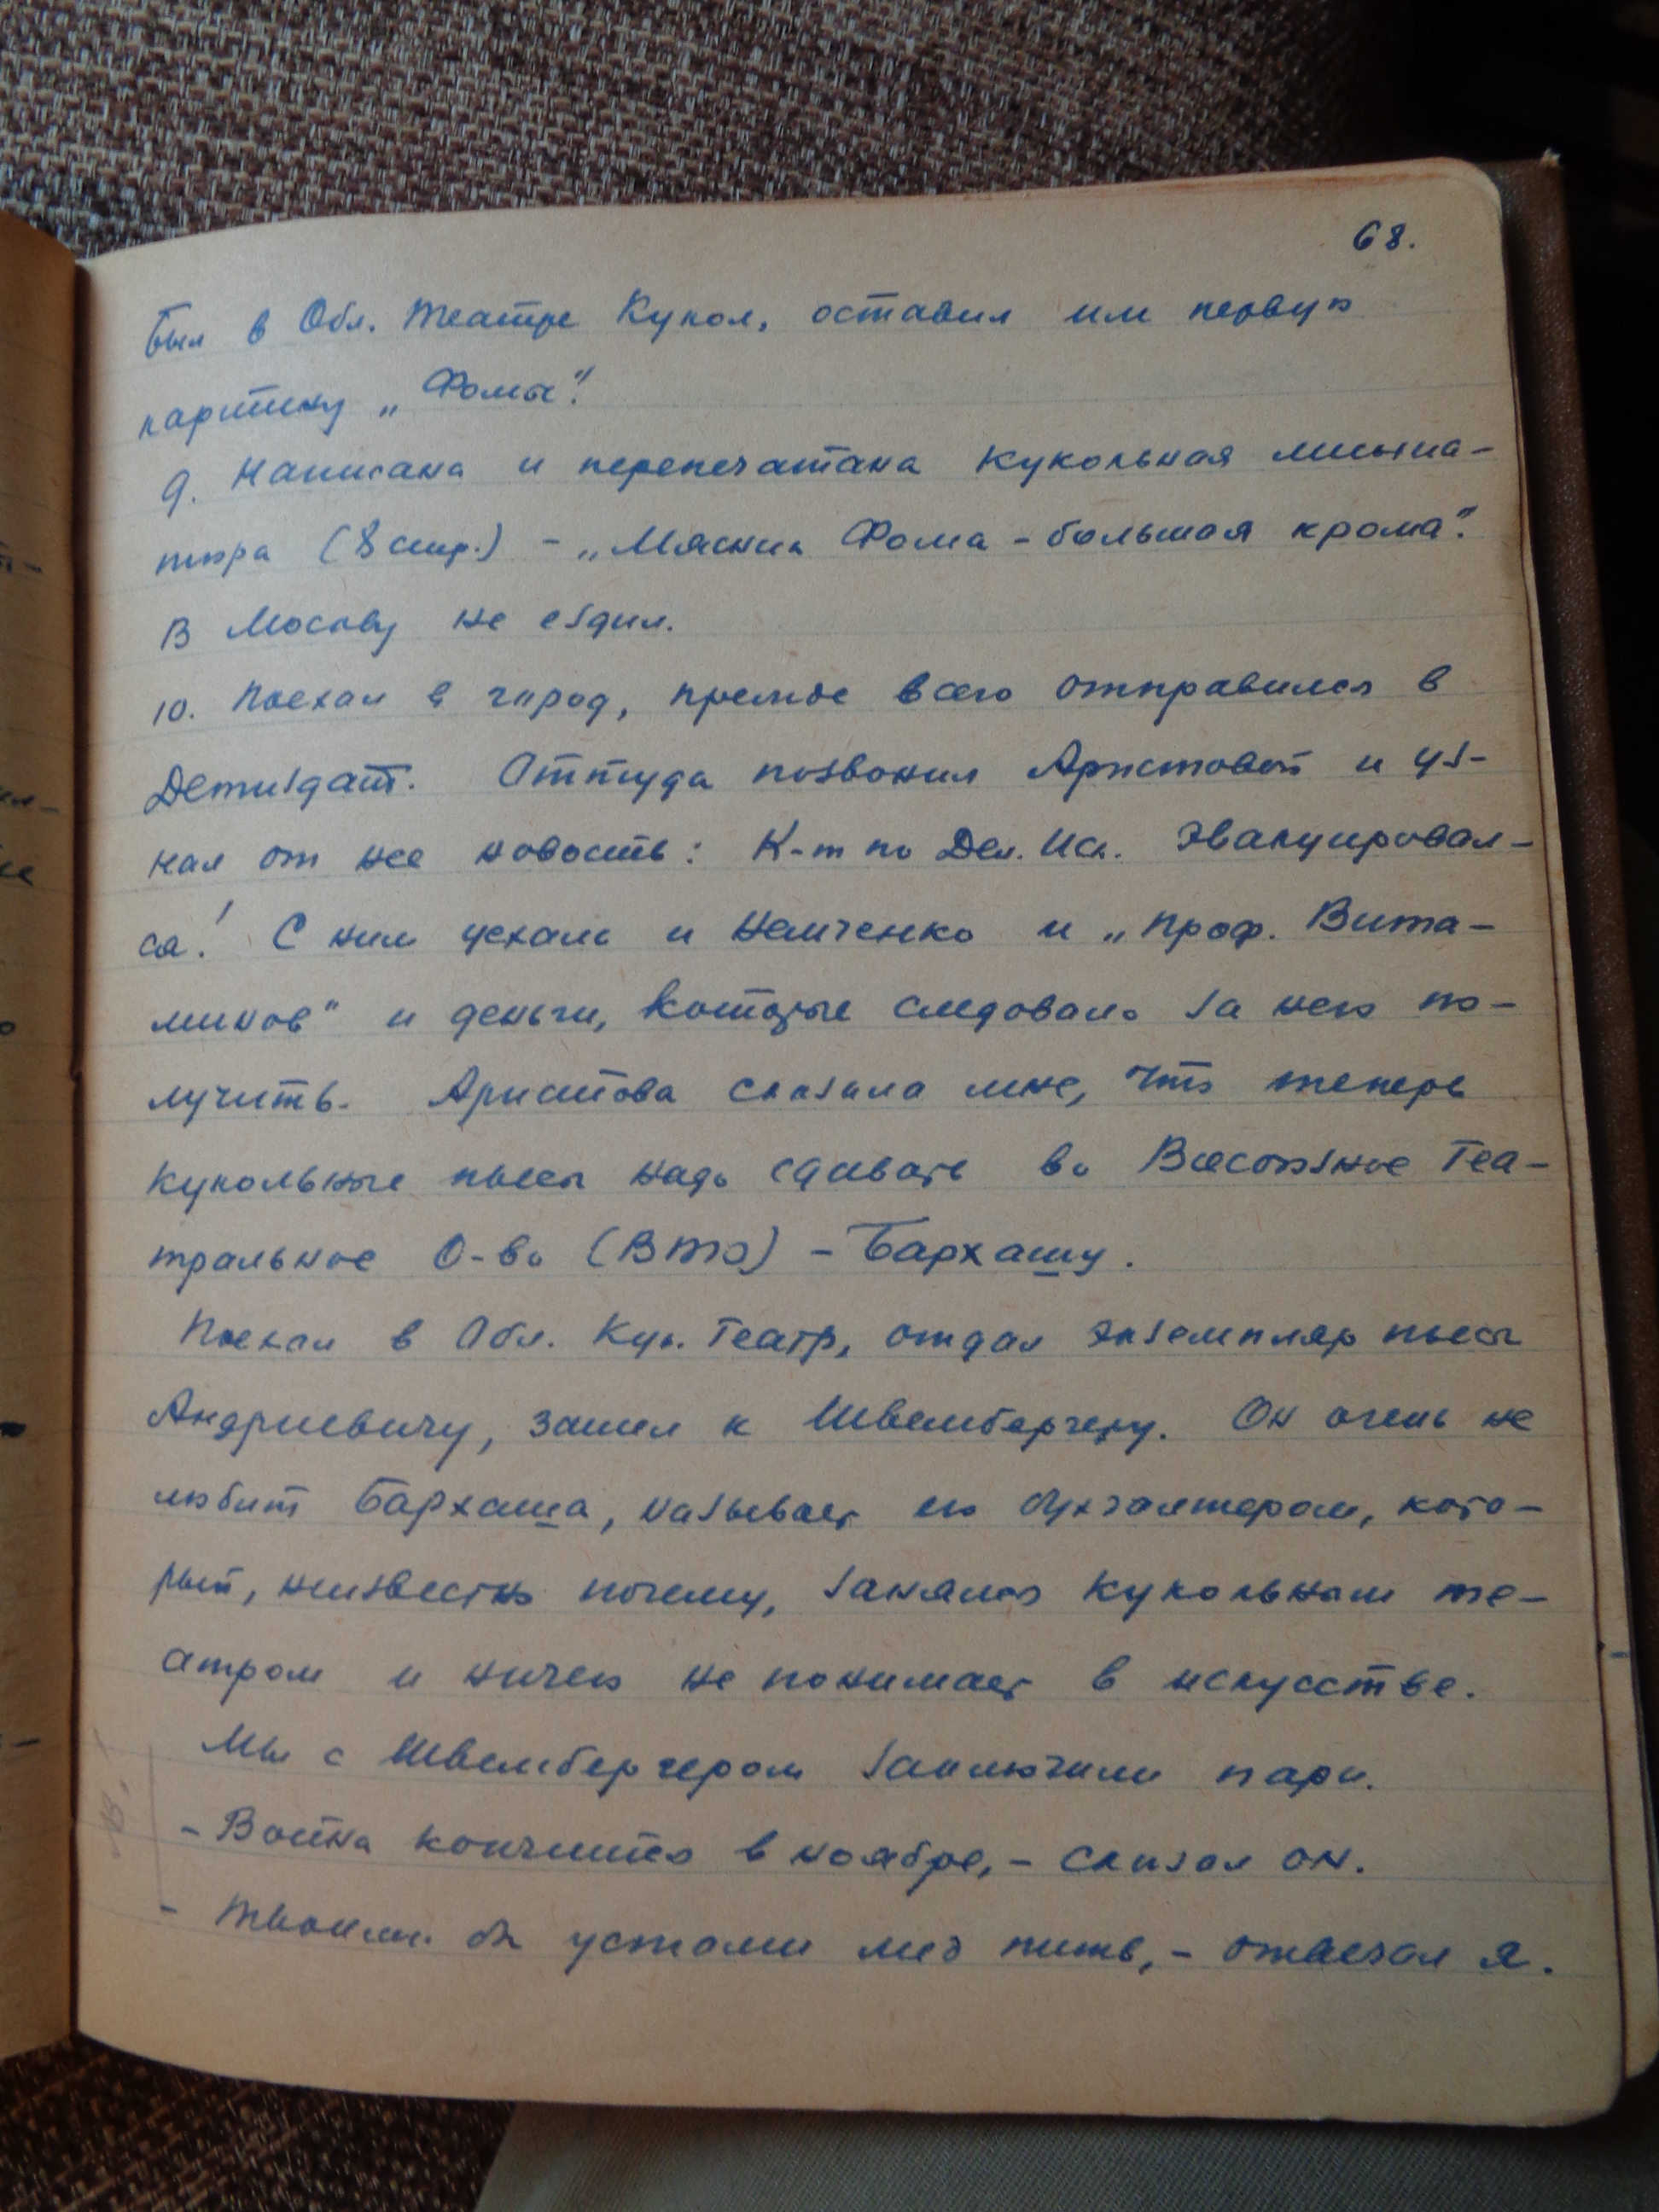 68.
Был в Обл. Театре Кукол, оставил им первую
картину „Фомы".
9. Написана и перепечатана кукольная миниа-
тюра (8 стр.) – „Мясник Фома – большая крома".
В Москву не ездил.
10. Поехал в город, прежде всего отправился в
Детиздат. Оттуда позвонил Аристовой и уз-
нал от нее новость: К-т по Дел. Иск. эвакуировал-
ся! С ним уехали и Немченко и „Проф. Вита-
минов" и деньги, которые следовало за него по-
лучить. Аристова сказала мне, что теперь
кукольные пьесы надо сдавать во Всесоюзное Теа-
тральное О-во (ВТО) – Бархашу.
Поехал в Обл. Кук. Театр, отдал экземпляр пьесы
Андриевичу, зашел к Швембергеру. Он очень не
любит Бархаша, называет его бухгалтером, кото-
рый, неизвестно почему, занялся кукольным те-
атром и ничего не понимает в искусстве.
Мы с Швембергером заключили пари.
– Война кончится в ноябре, – сказал он.
– Твоими бы устами мед пить, – отвечал я.